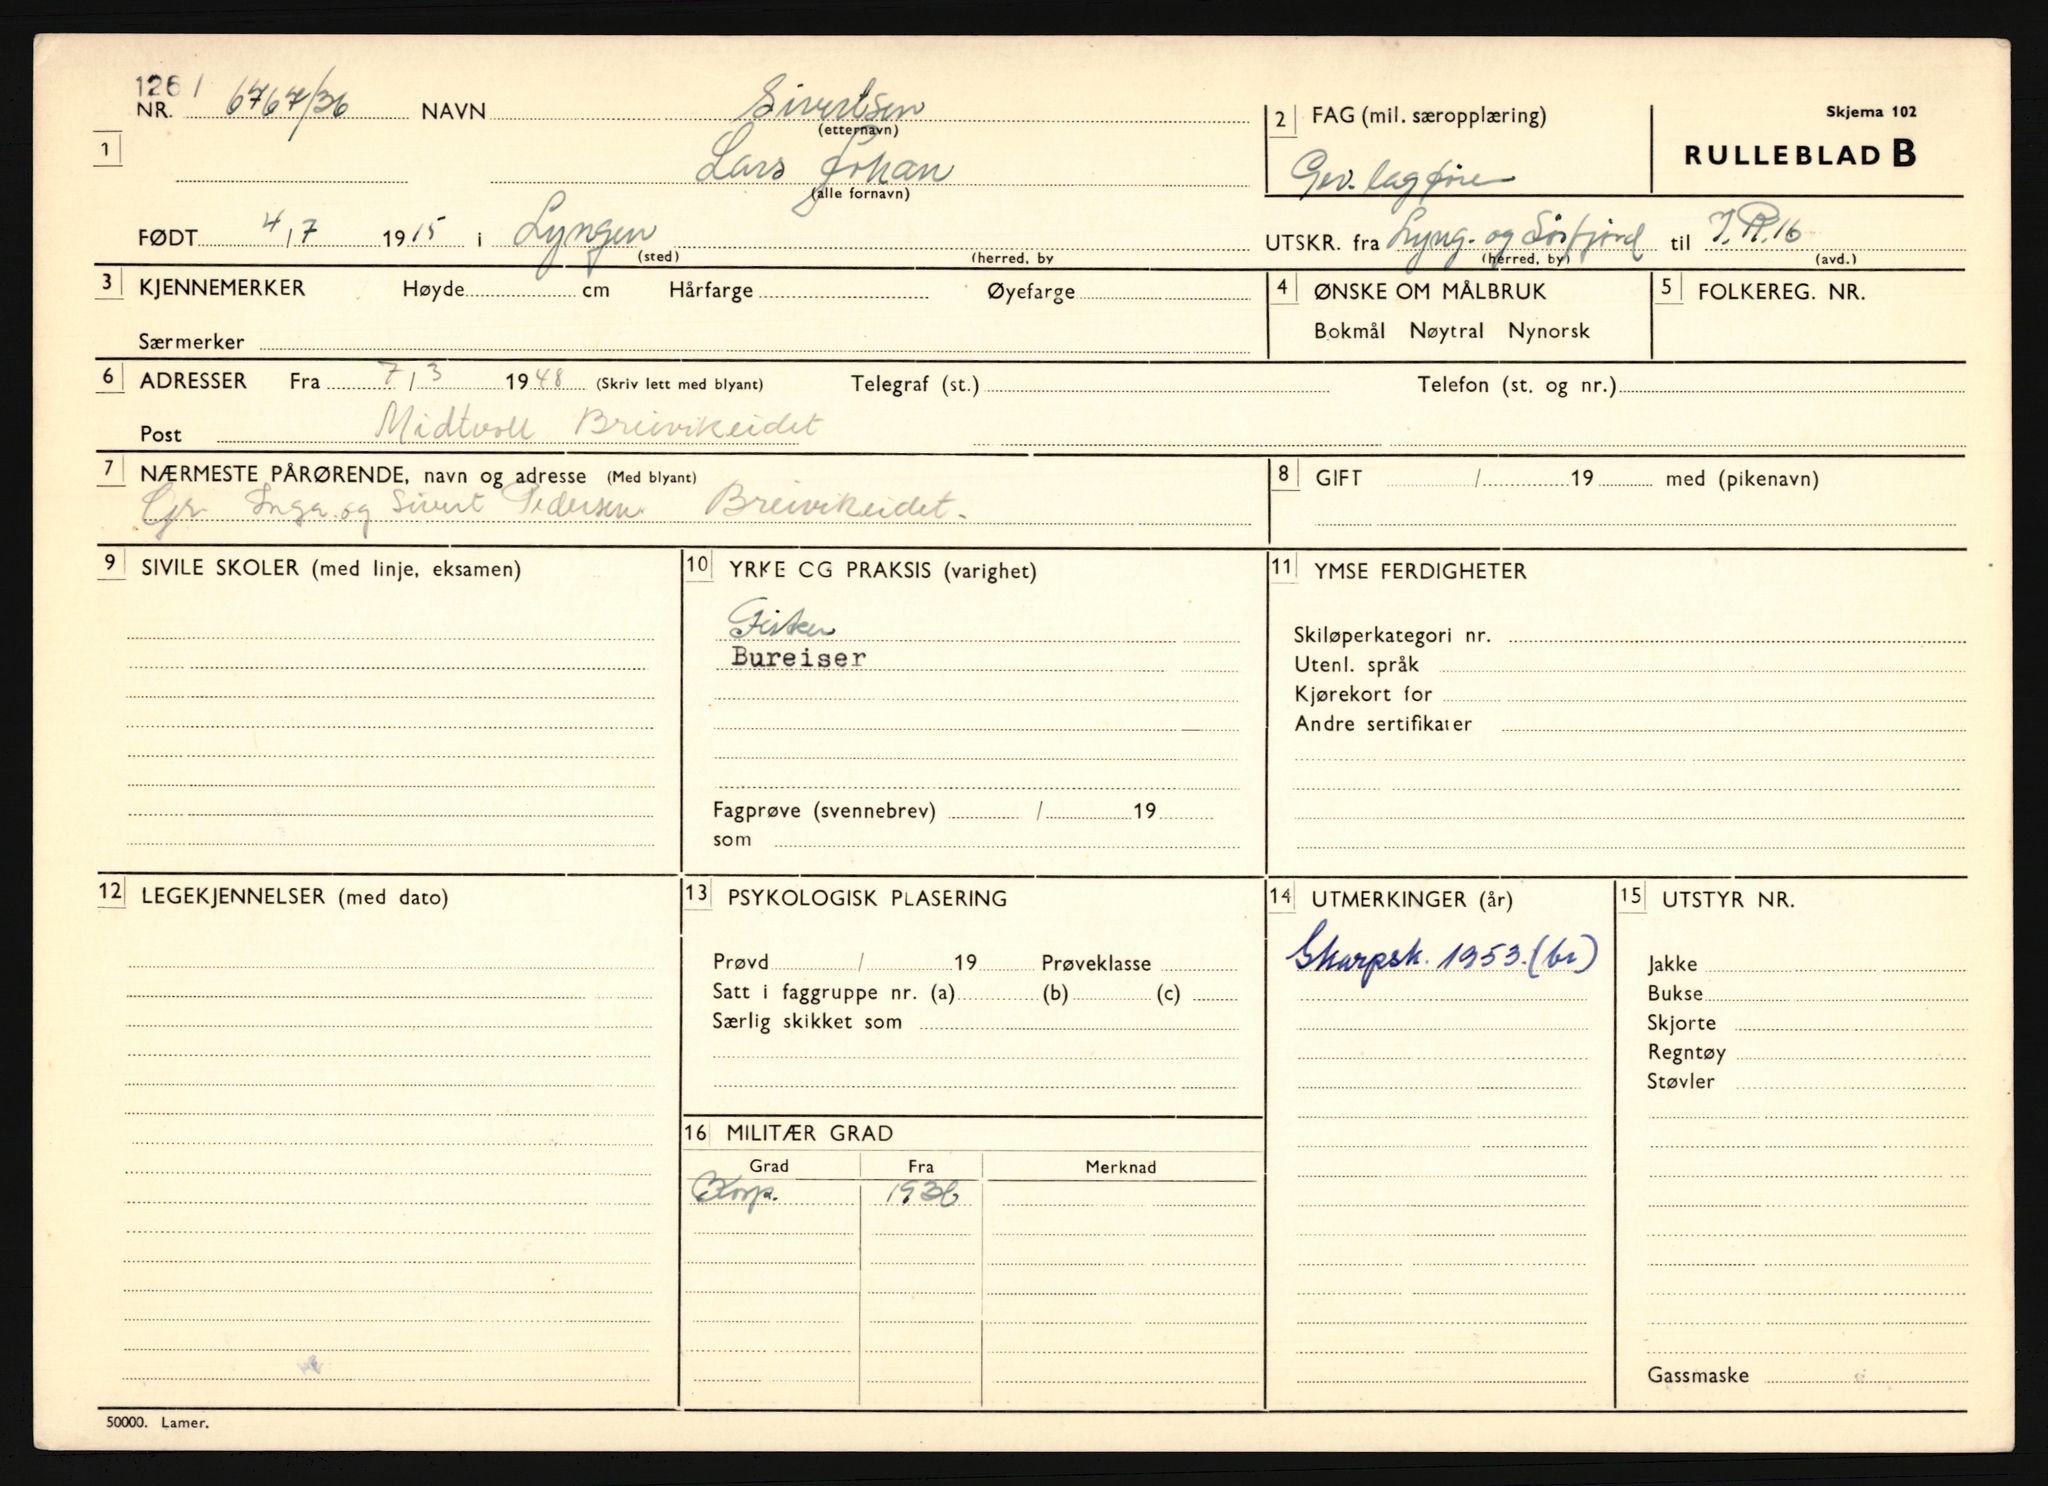 1261
NR. 6767/36 NAVN Sivertsen
(etternavn)
1 Lars Johan
(alle fornavn)
2 FAG (mil. særopplæring)
Gev. lagføre
Skjema 102
RULLEBLAD B
FØDT 4/7 1915 i Lyngen
(sted) (herred, by
UTSKR. fra Lyng. og Sørfjord til I.R.16
(herred, by) (avd.)
3 KJENNEMERKER Høyde cm Hårfarge Øyefarge
Særmerker
4 ØNSKE OM MÅLBRUK
Bokmål Nøytral Nynorsk
5 FOLKEREG. NR.
6 ADRESSER Fra 7/3 1948 (Skriv lett med blyant) Telegraf (st.) Telefon (st. og nr.)
Post Midtvoll Breivikeidet
7 NÆRMESTE PÅRØRENDE, navn og adresse (Med blyant)
Gr. Inga og Sivert Pedersen Breivikeidet.
8 GIFT / 19 med (pikenavn)
9 SIVILE SKOLER (med linje, eksamen)
10 YRKE CG PRAKSIS (varighet)
Fisker
Bureiser
Fagprøve (svennebrev) / 19
som
11 YMSE FERDIGHETER
Skiløperkategori nr.
Utenl. språk
Kjørekort for
Andre sertifikater
12 LEGEKJENNELSER (med dato)
13 PSYKOLOGISK PLASERING
Prøvd / 19 Prøveklasse
Satt i faggruppe nr. (a) (b) (c)
Særlig skikket som
14 UTMERKINGER (år)
Skarpsk. 1953. (br)
15 UTSTYR NR.
Jakke
Bukse
Skjorte
Regntøy
Støvler
Gassmaske
16 MILITÆR GRAD
Grad Fra Merknad
Korp. 1936
50000. Lamer.